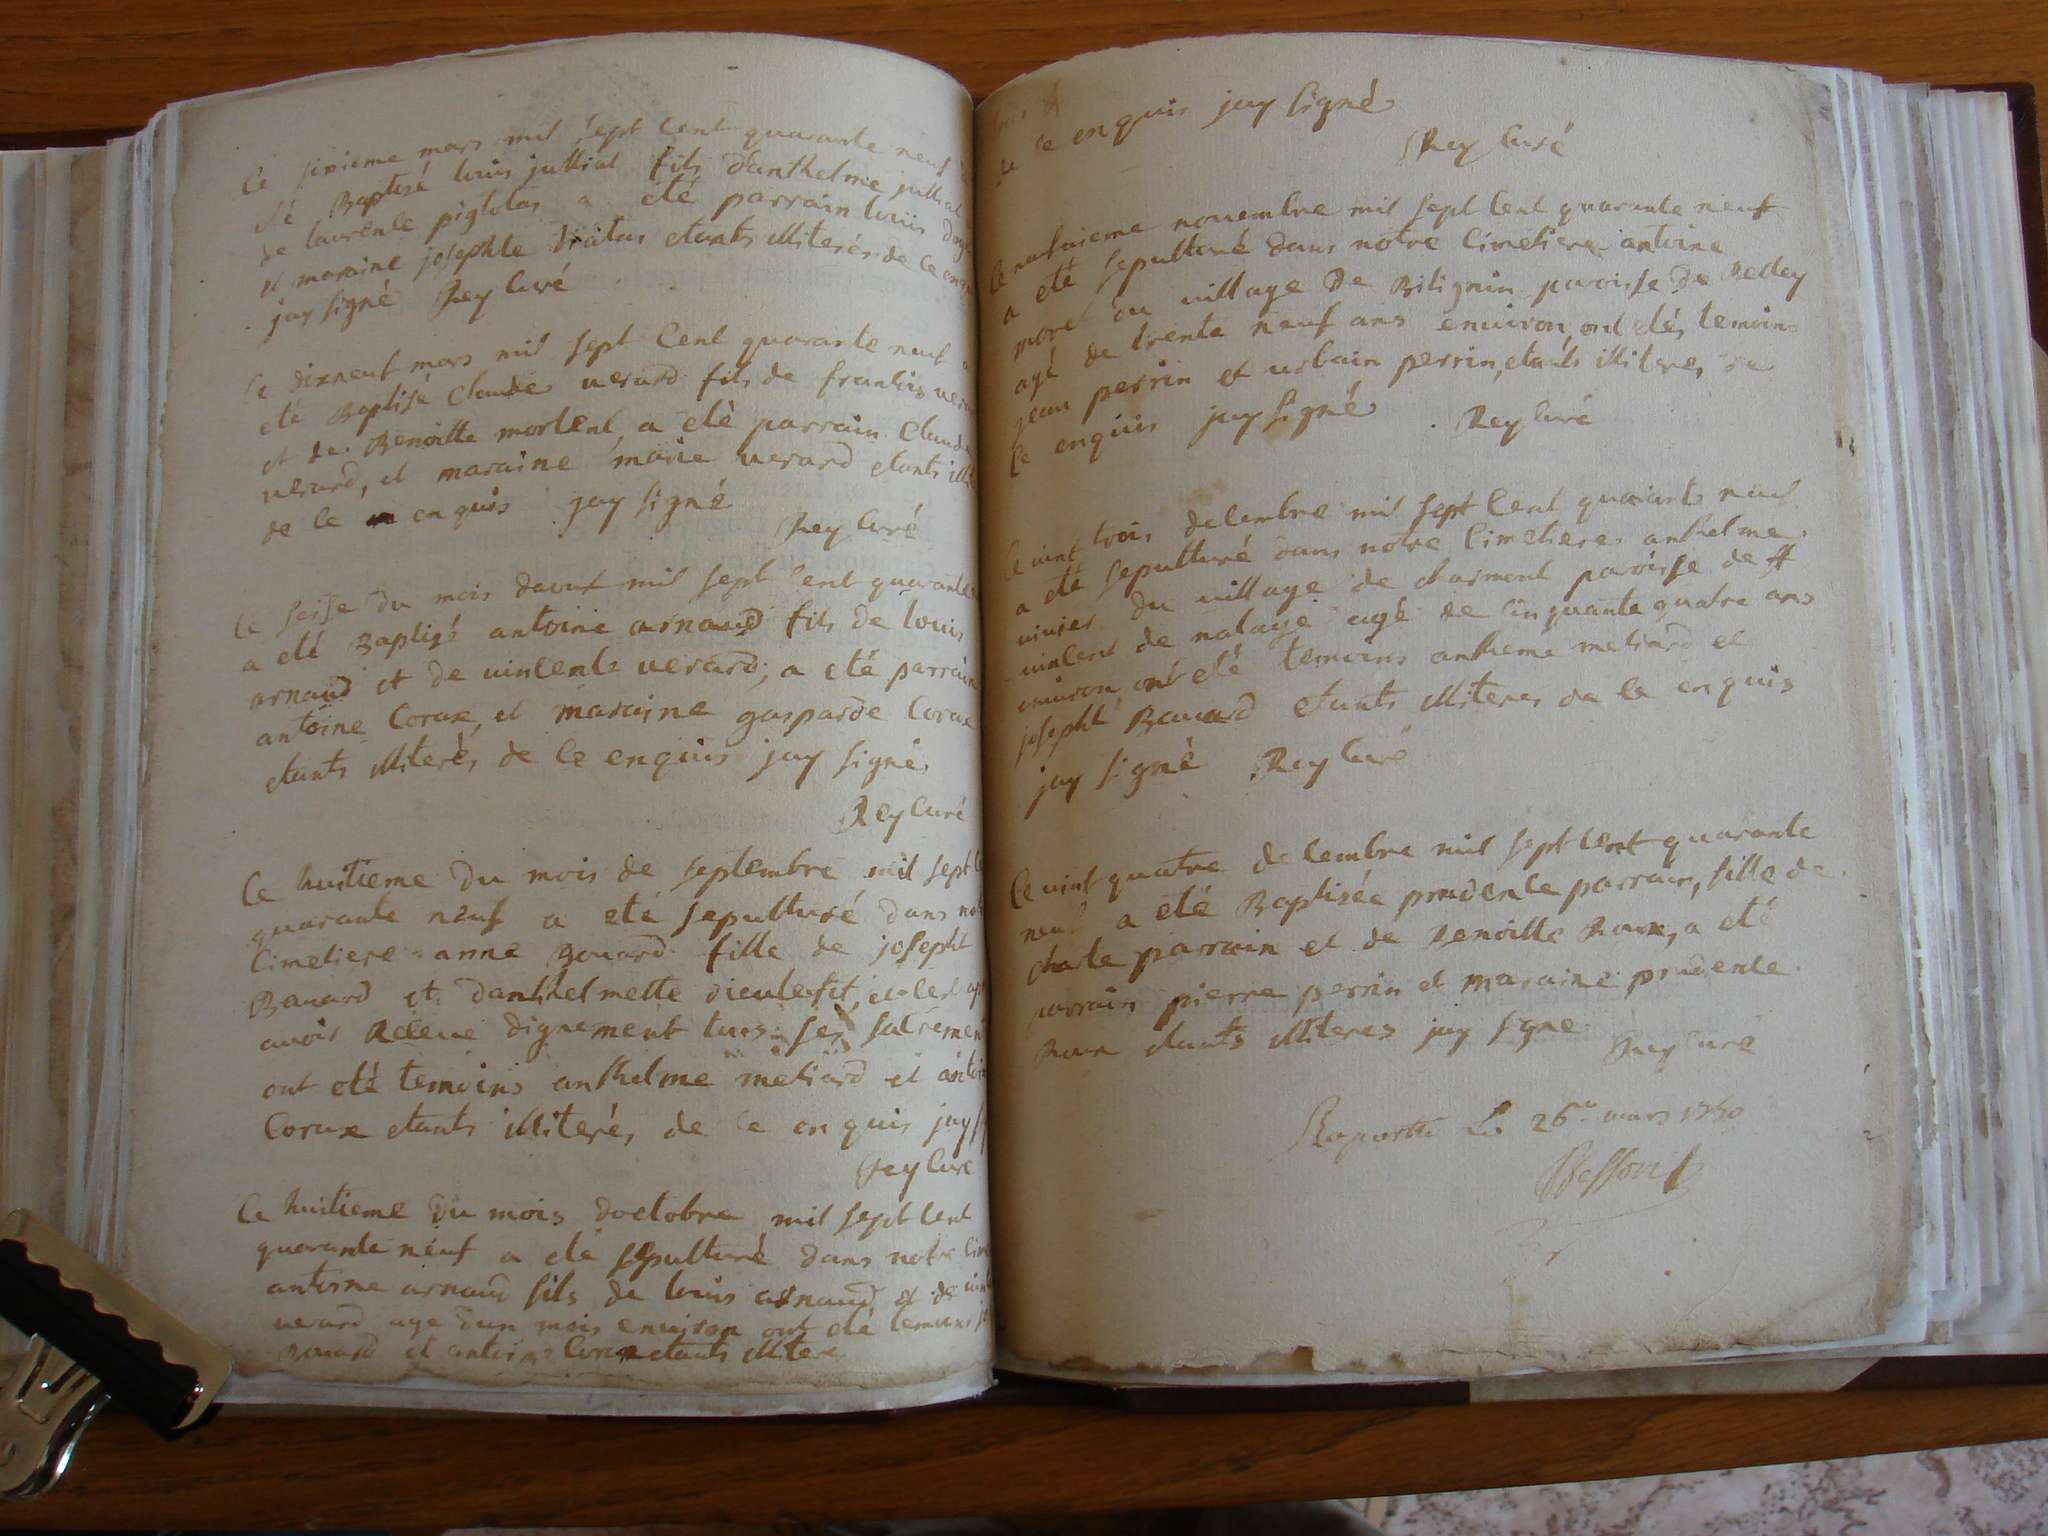 Le sixieme mars mil sept cent quarante neuf a
eté Baptisé louis jullial fils danthelme jullial
de laurence piglotas a eté parrain louis
et maraine josephte etants illiterés de ce enquis
jay signé Rey Curé
Le dixneuf mars mil sept Cent quarante neuf a
eté Baptisé Claude uerard fils de francois uerard
et de Benoitte mortent a eté parrain Claude
uerard, et maraine marie uerard etants illi
de ce enquis jay signé
Rey Curé
Le seise du mois daout mil sept Cent quarante
a eté Baptisé antoine arnaud fils de louis
arnaud et de uincente uerard, a eté parrain
antoine Corax, et maraine gasparde Corax
etants illiterés de ce enquis jay signé
Rey Curé
Le huitieme du mois de septembre mil sept
quarante neuf a eté sepulturé dans notre
Cimetiere anne Bouard fille de josepht
Bauard et danthelmette dieulefit, et cest apres
auoir Receue dignement tous ses sacrements
ont eté temoins anthelme metiard et antoine
Corax etants illiterés de ce enquis jay
Rey Curé
Le huitieme du mois doctobre mil sept Cent
quarante neuf a eté sepulturé dans notre
antoine arnaud fils de louis arnaud et de
uerard agé dun mois enuiron ont eté temoins
Bouard et antoine Corax etants illitere
de ce enquis jay signé
Rey Curé
Le nufuieme nouembre mil sept Cent quarante neuf
a eté sepulturé dans notre Cimetiere antoine
morel du uillage de Bilignin paroisse de Belley
agé de trente neuf ans enuiron ont etés temoins
jean perrin et urbain perrin, etants illiteres de
Ce enquis jay signé Rey Curé
Le uint trois decembre mil sept Cent quarante neuf
a eté sepulturé dans notre Cimetiere anthelme
uiuier du uillage de charmont paroisse de st
uincent de nalage agé de Cinquante quatre ans
enuiron ont eté temoins anthelme metiard et
josepht Bauard etants illiteres de ce enquis
jay signé Rey Curé
Le uint quatre decembre mil sept Cent quarante
neuf a eté Baptisée prudence parrain, fille de
charle parrain et de Benoitte Roux, a eté
parrain pierre perrin et maraine prudence
Roux etants illiteres jay signe
Rey Curé
Raporté Le 26e mars 1750
Besson